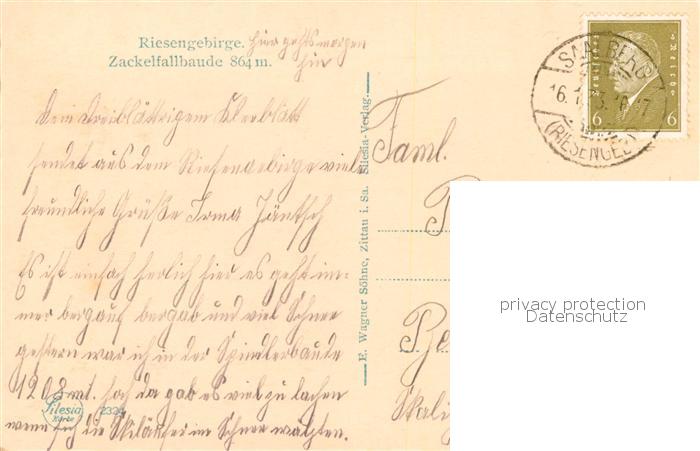 Riesengebirge. hier gehts morgen
Zackelfallbaude 864 m. hin
Dem Dreiblättrigem Kleeblatt
sendet aus dem Riesengebirge viel
freundliche Grüße Irma Jäntsch
Es ist einfach herlich hier es geht im-
mer bergauf bergab und viel Schnee
gestern war ich in der Spindlerbaude
1208 mt. hoch da gab es viel zu lachen
wenn sich die Skiläufer im Schnee walzten.
Silesia
Karte
2324
E. Wagner Söhne, Zittau i. Sa. Silesia-Verlag.
Faml.
Be
Skali
SAALBERG
(RIESENGEB
6 6
privacy protection
Datenschutz